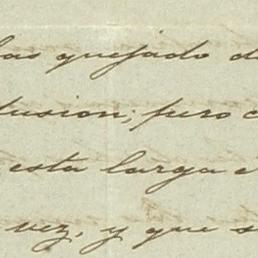 las quejado d
fusion; pero c
esta larga é
vez, y que s